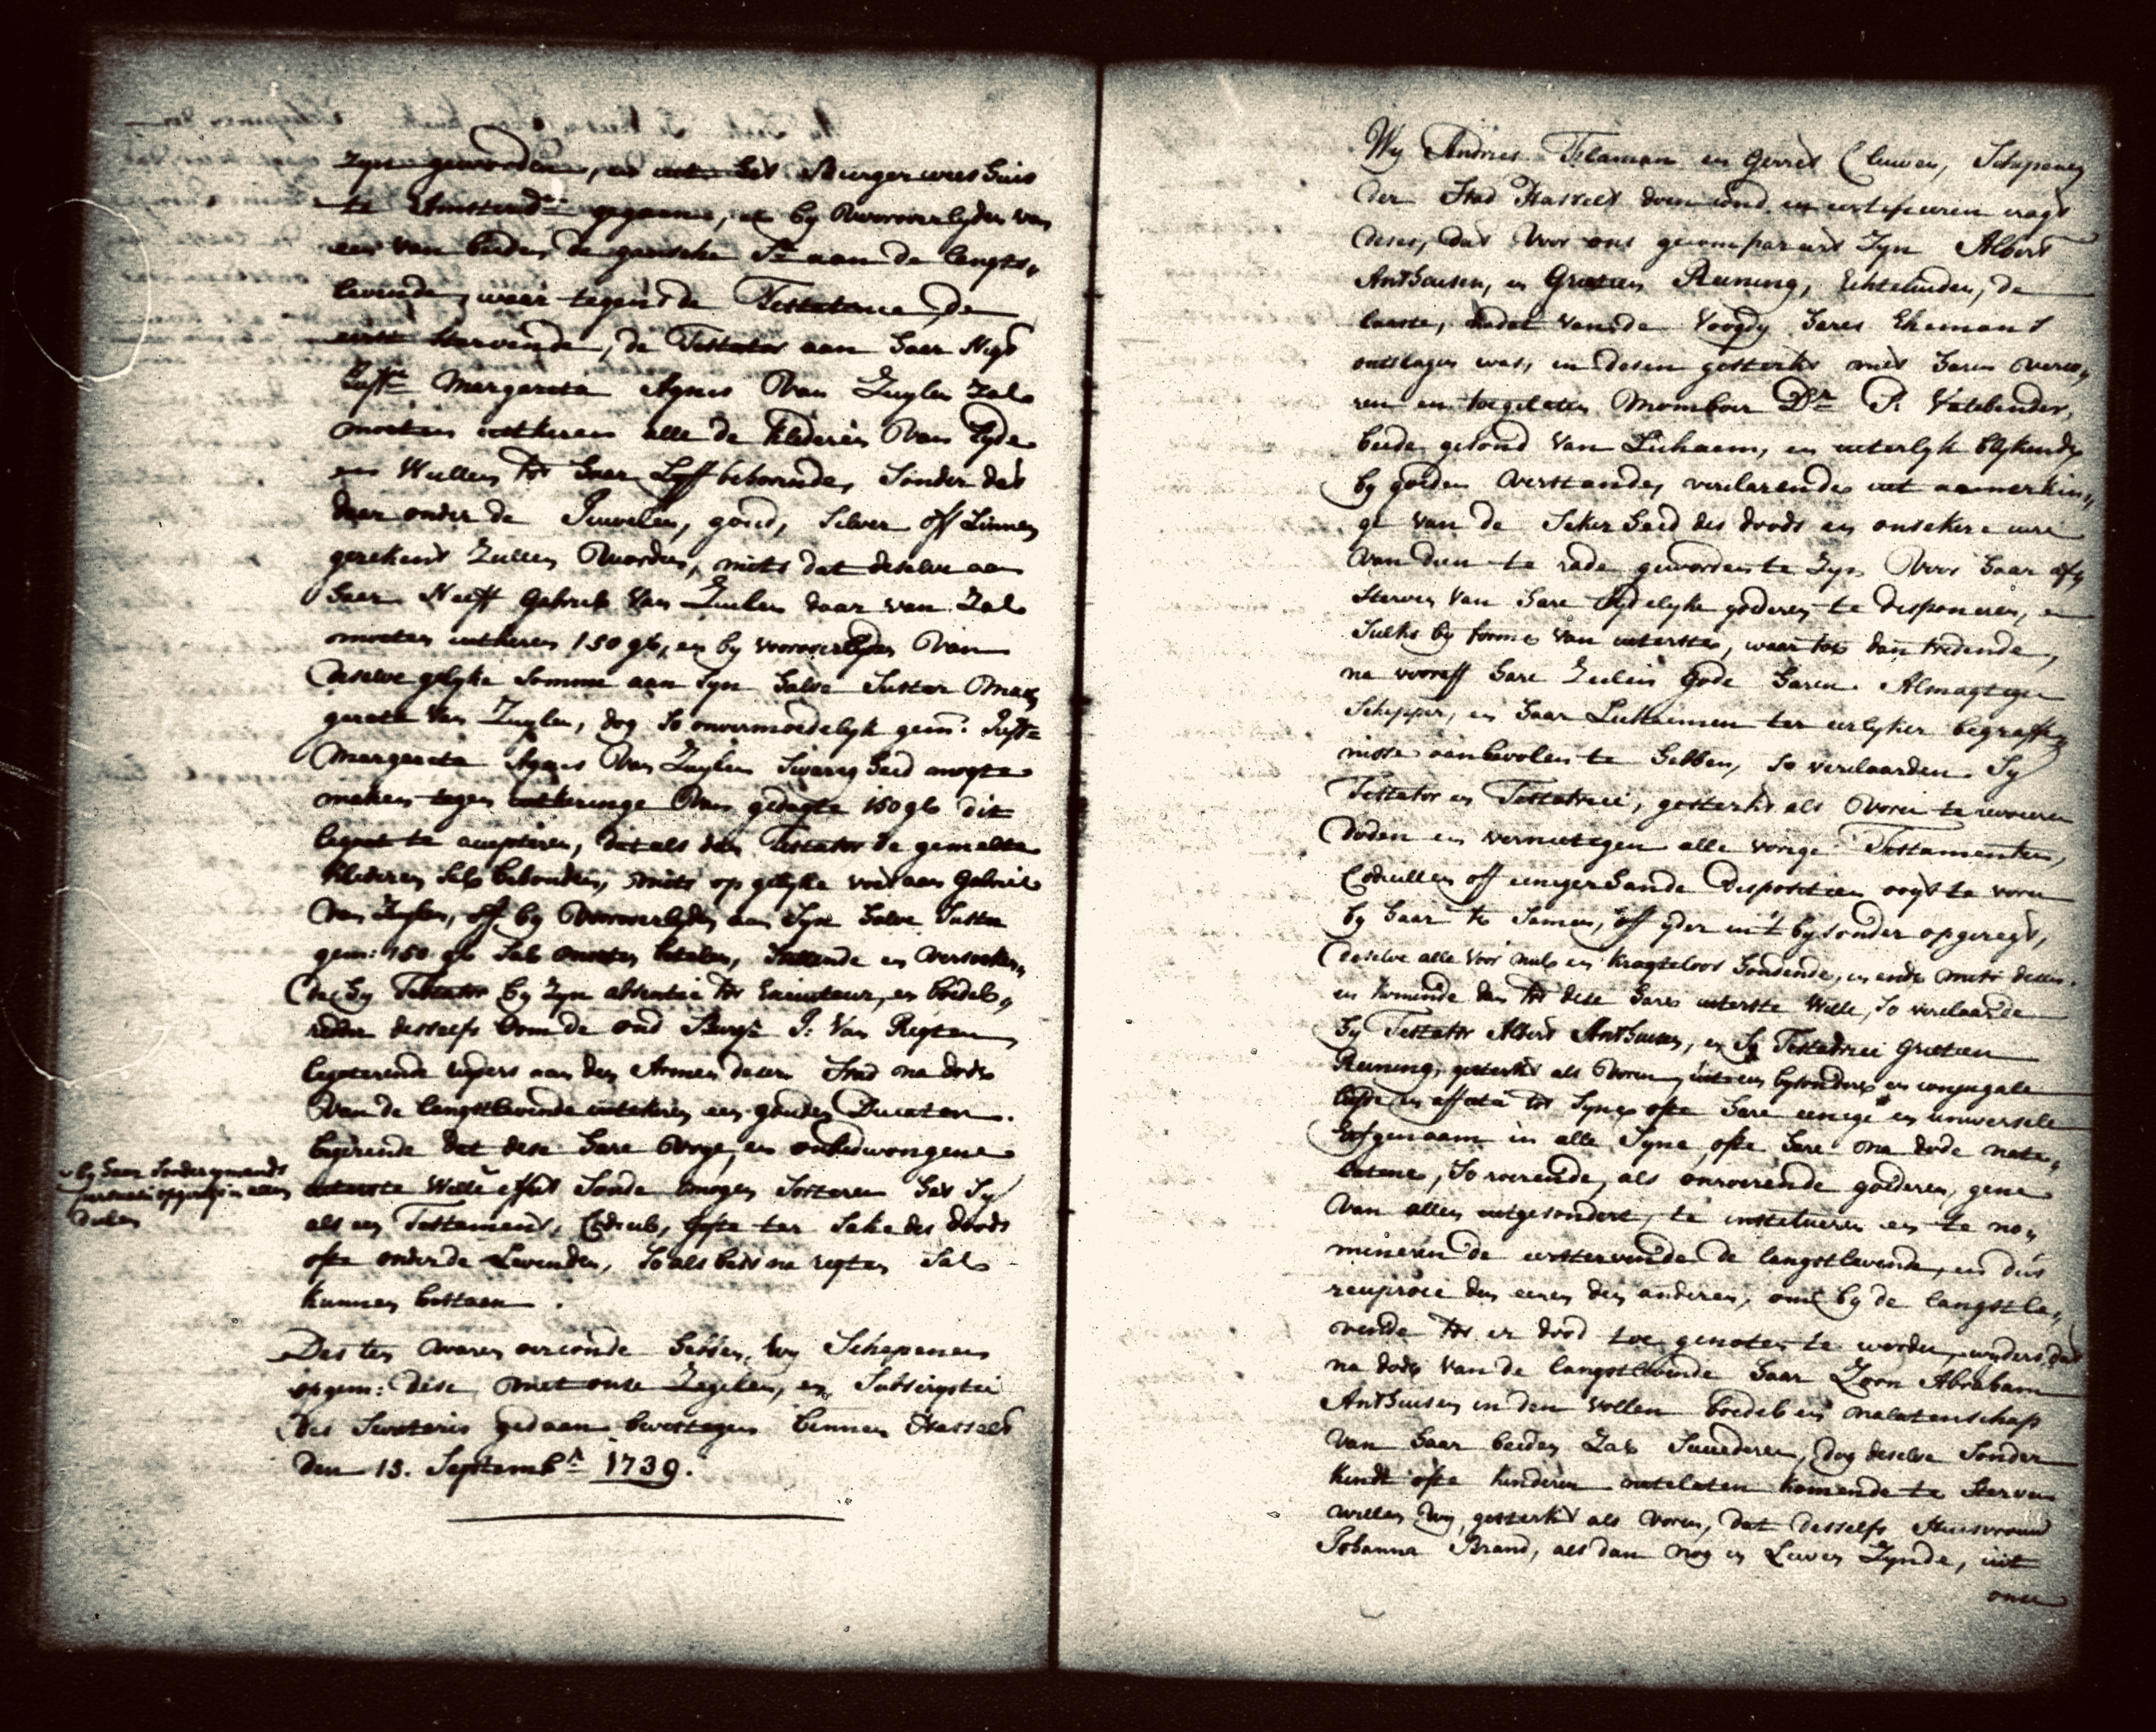 Zyn geworden, en uit het Burgerweeshuis
te Amsterd:m gegaane, en by Vooroverlyden van
een van beiden de gansche S:e aan de langst„
levende, waar tegens de Testatrice de
eerst stervende, de Testator aan haer Nigt
Juff:r Margareta Agnes Van Zuylen Zal
moeten uitkeren alle de klederen Van Zyde
en Wullen tot haar Lyff behorende, Sonder dat
daar onder de Juwelen, goud, Silver off Linnen
gerekent Zullen Worden, mits dat deselve aan
haar Neeff Gabriel Van Zuilen daar van Zal
moeten uitkeren 150 gls, en by vooroverlyden Van
deselve gelyke Somme aan Syn halve Suster Mar„
gareta Van Zuylen, dog So onvermoedelyk gem: Juff:r
Margareta Agnes Van Zuylen Swarigheid mogte
maken tegen uitkeringe Van gedagte 150 gls dit
legaat te accepteren, dat als dan Testator de gemelte
klederen Sal behouden, mits op gelyke voet aan Gabriel
Van Zuylen, off by Vooroverlyden aan Syn halve Suster
gem: 150 gls Sal moeten betalen, Stellende en Versoeken„
de hy Testator by Zyn absentie tot Executeur, en boedel„
redder desselfs Oom de oud Burg:r J: Van Regten
legaterende wyders aan den Armen deser Stad na dode
Van de langstlevende uittekeren een gouden Ducaton.
begerende dat dese hare Vrye, en onbedwongene
by haar Sonder ymands
persuasie opgeregt in allen
delen
uiterste Wille effect Sonde mogen Sorteren het Sy
als een Testament, Codicil, gifte ter Sake des doods
ofte onder de Levenden, So als best na regten Sal
kunnen bestaen.
Des ten waren oirconde hebben wy Schepenen
opgem: dese met onse Zegelen, en Subscriptie
des Secretaris gedaan bevestigen binnen Hasselt
den 15. Septemb:r 1739.
Wy Andries Telaman en Gerrit Cluwen, Schepenen
der Stad Hasselt doen cond en certificeren cragt
deses, dat Voor ons gecompareert Zyn Albert
Anthuisen, en Grietien Reuning, Echtelieden, de
laaste, nadat van de Voogdy hares Ehemans
ontslagen was, in desen gesterkt met haren verco„
ren en toegelaten Momboir D:r P. Vatebender,
beide gesond Van Lichaem, en uiterlyk blykende
by goeden Verstande, verclarende uit aanmerkin„
ge van de Sekerheid des doods en onsekere ure
van dien te rade geworden te Zyn Voor haar aff„
sterven Van hare tydelyke goederen te disponeren, en
Sulks by forme Van uiterste, waar toe dan tredende,
na vooraff hare Zielen Gode haren Almagtigen
Schepper, en haar Lichaemen ter eerlyker begraffe„
nisse aanbevolen te hebben, So verclaarden Sy
Testator en Testatrice, gesterkt als Voren te revoceren
doden en vernietigen alle vorige Testamenten,
Codicillen off eenigerhande Dispositien ooyt te voren
by haar te Samen, off yder in't bysonder opgeregt,
deselve alle voor nul en kragteloos houdende, en ende mits desen.
en komende dan tot dese hare uiterste Wille, So verclaarde
hy Testator Albert Anthuisen, en Sy Testatrice Grietien
Reuning, gesterkt als Voren, uit een bysondere en conjugale
liefde en affectie tot Syne ofte hare eenige en universele
Erfgenaam in alle Syne ofte hare na dode nate„
latene, So roerende, als onroerende goederen, gene
Van allen uitgesondert, te institueren en te no„
mineren de eerstervende de langstlevende, en dus
reciproce den eenen den anderen, om by de langstle„
vende tot er dood toe genoten te worden, wyders dat
na dode van de langstlevende haar Zoon Abraham
Anthuisen in den vollen boedel en nalatenschap
van haar beiden Zal Succederen, dog deselve Sonder
kindt ofte kinderen natelaten komende te Sterven
willen wy, gesterkt als voren, dat desselfs Huisvrouw
Johanna Brand, als dan nog in Leven Zynde, uit
onse